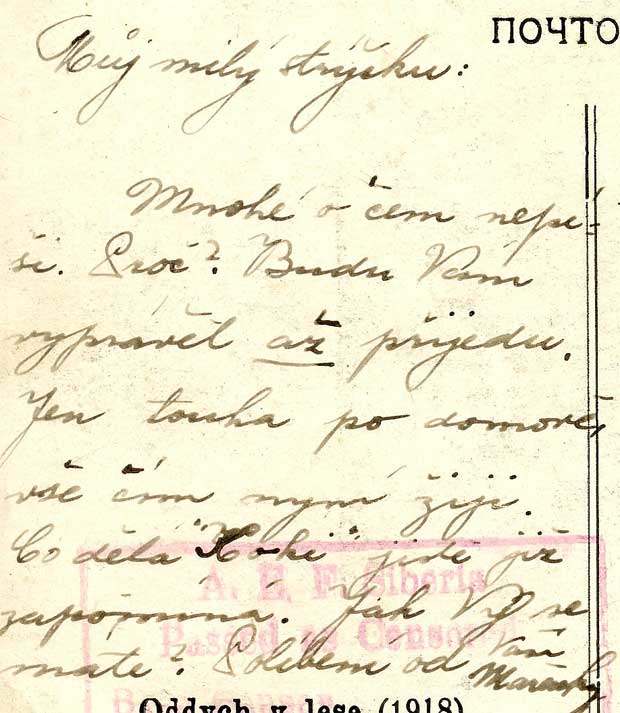 ПОЧТО
Můj milý strýčku:
Mnohé o čem nepí-
ši. Proč? Budu Vám
vyprávěl až přijedu.
Jen touha po domově,
vše čím nyní žiji.
Co dělá "Koki" jistě již
zapomíná. Jak Vy se
máte? Políbení od Vaší
A. E. F. Siberia
Passed as Censored
Oddych v lese (1918)